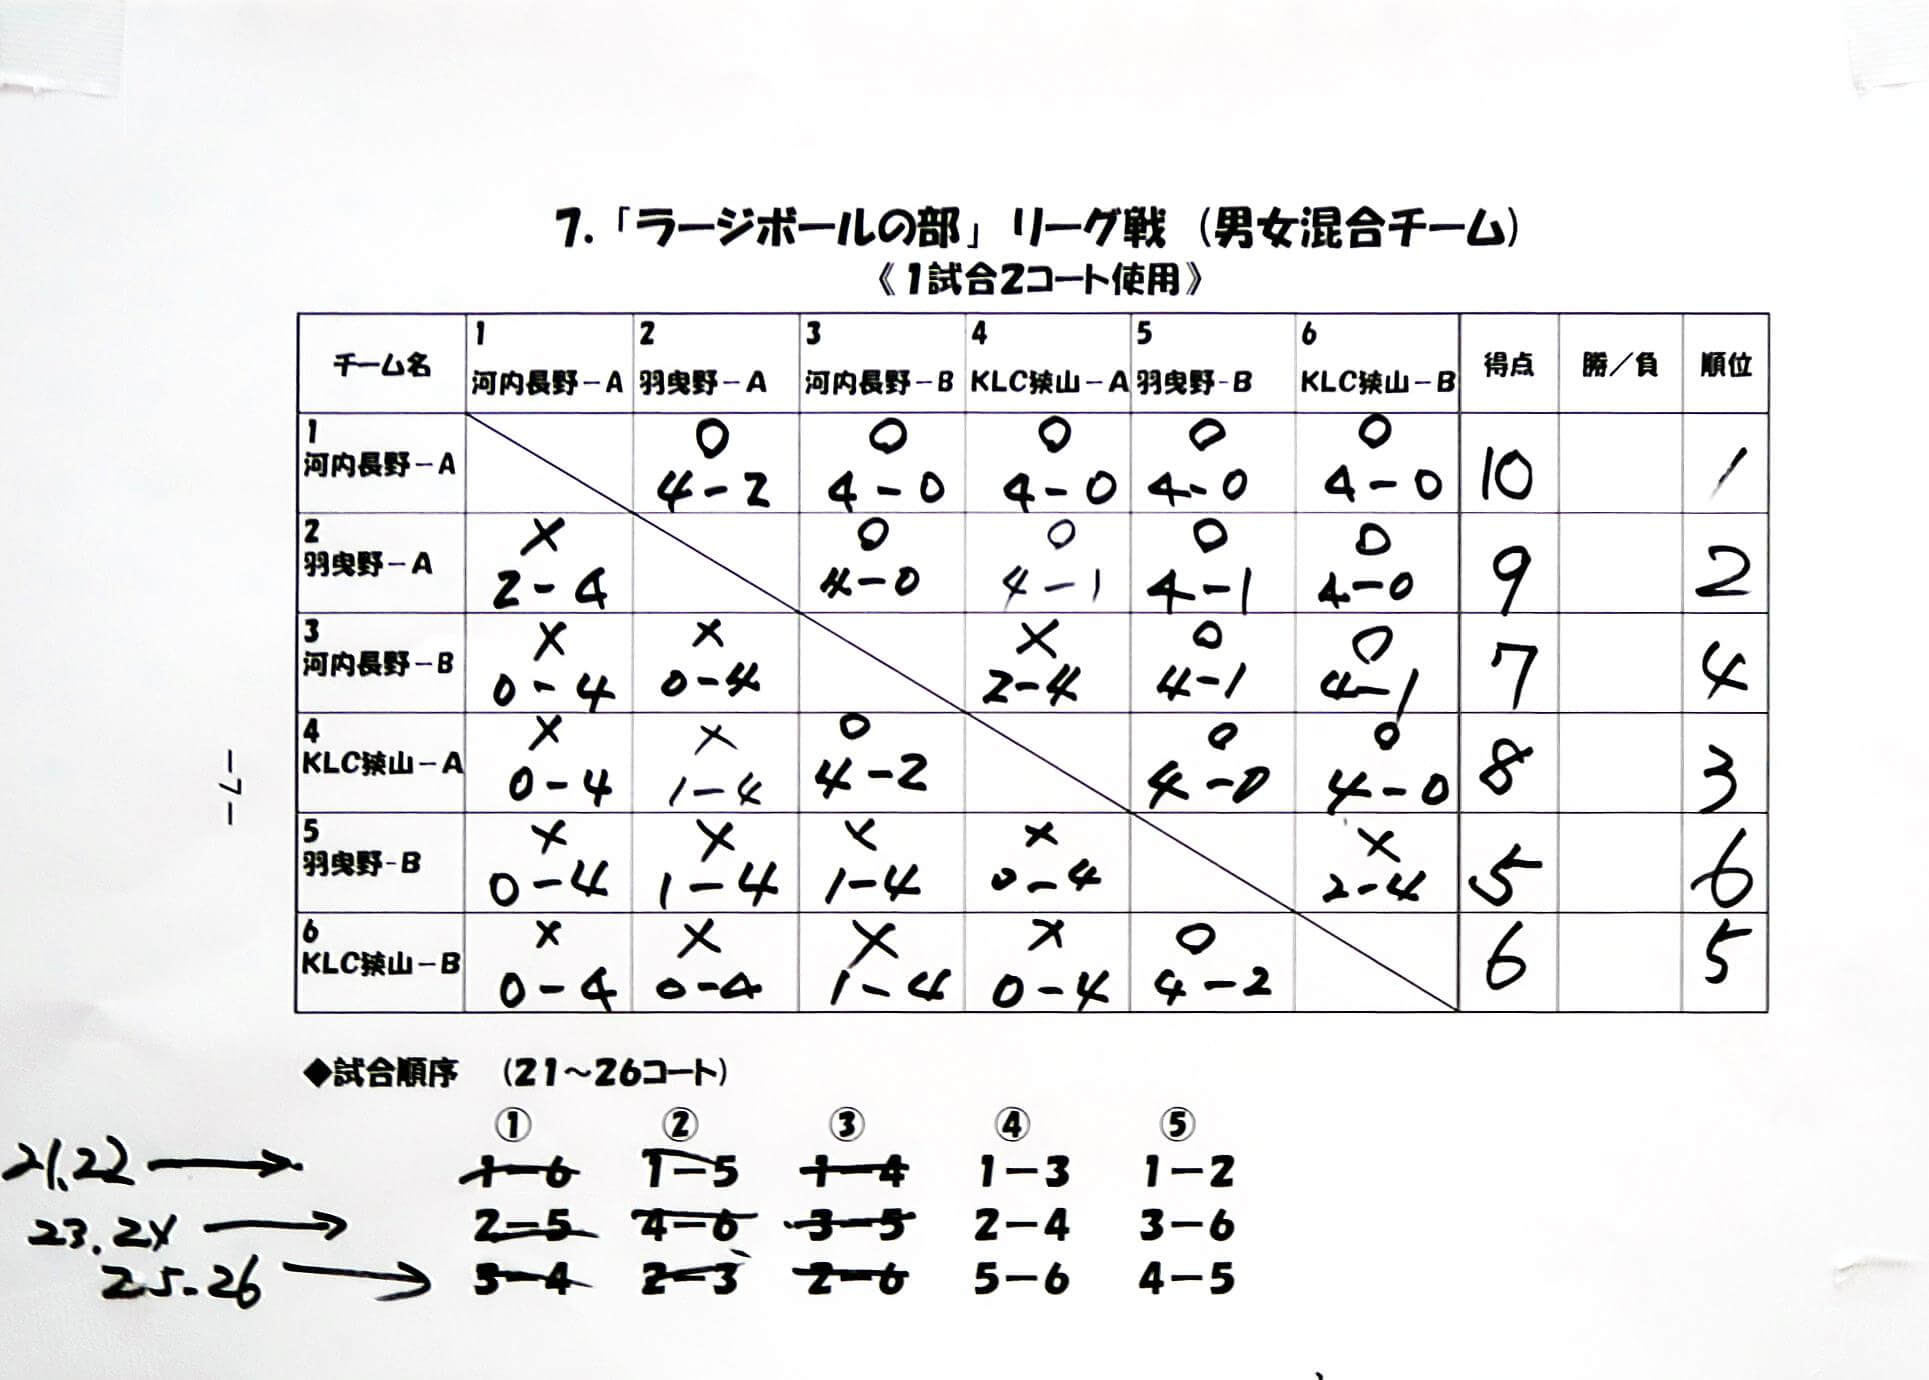 7.「ラージボールの部」リーグ戦（男女混合チーム）
《1試合2コート使用》
チーム名 1 河内長野－A 2 羽曳野－A 3 河内長野－B 4 KLC狭山－A 5 羽曳野-B 6 KLC狭山－B 得点 勝／負 順位
1 河内長野－A ○ 4-2 ○ 4-0 ○ 4-0 ○ 4-0 ○ 4-0 10 1
2 羽曳野－A × 2-4 ○ 4-0 ○ 4-1 ○ 4-1 ○ 4-0 9 2
3 河内長野－B × 0-4 × 0-4 × 2-4 ○ 4-1 ○ 4-1 7 4
4 KLC狭山－A × 0-4 × 1-4 ○ 4-2 ○ 4-0 ○ 4-0 8 3
5 羽曳野-B × 0-4 × 1-4 × 1-4 × 0-4 × 2-4 5 6
6 KLC狭山－B × 0-4 × 0-4 × 1-4 × 0-4 ○ 4-2 6 5
－7－
◆試合順序 （21～26コート）
① ② ③ ④ ⑤
21.22 → 1－6 1－5 1－4 1－3 1－2
23.24 → 2－5 4－6 3－5 2－4 3－6
25.26 → 3－4 2－3 2－6 5－6 4－5